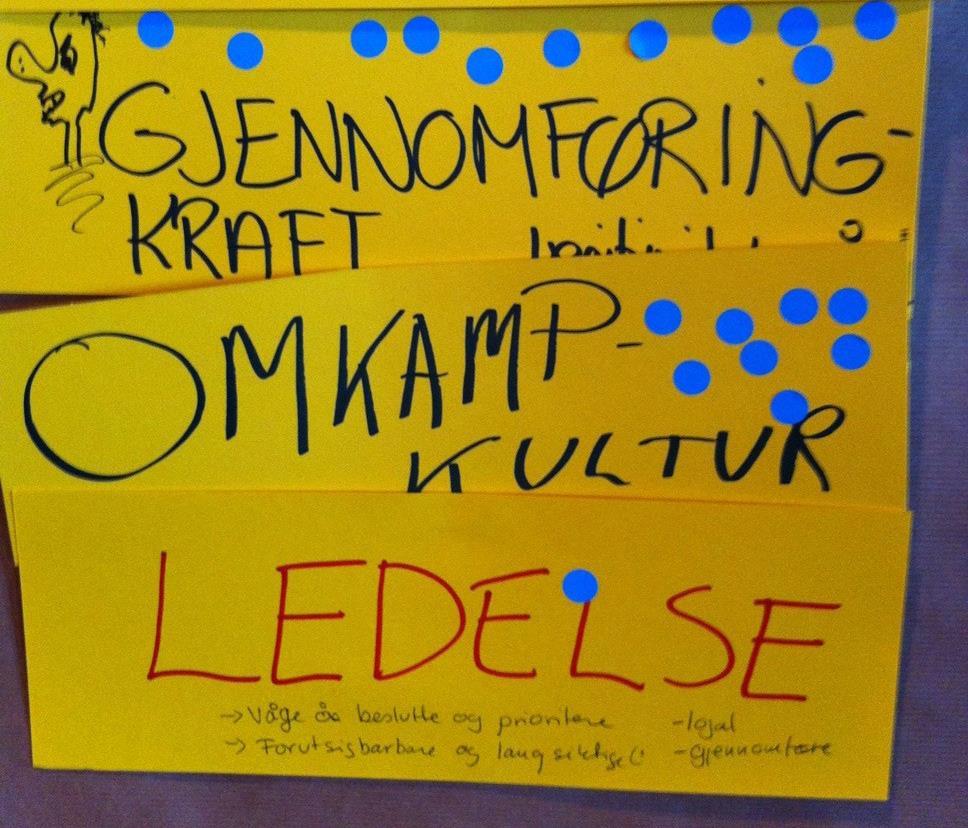 GJENNOMFØRING-
KRAFT
OMKAMP-
KULTUR
LEDELSE
-> Våge å beslutte og prioritere -lojal
-> Forutsigbarbare og langsiktige -gjennomføre